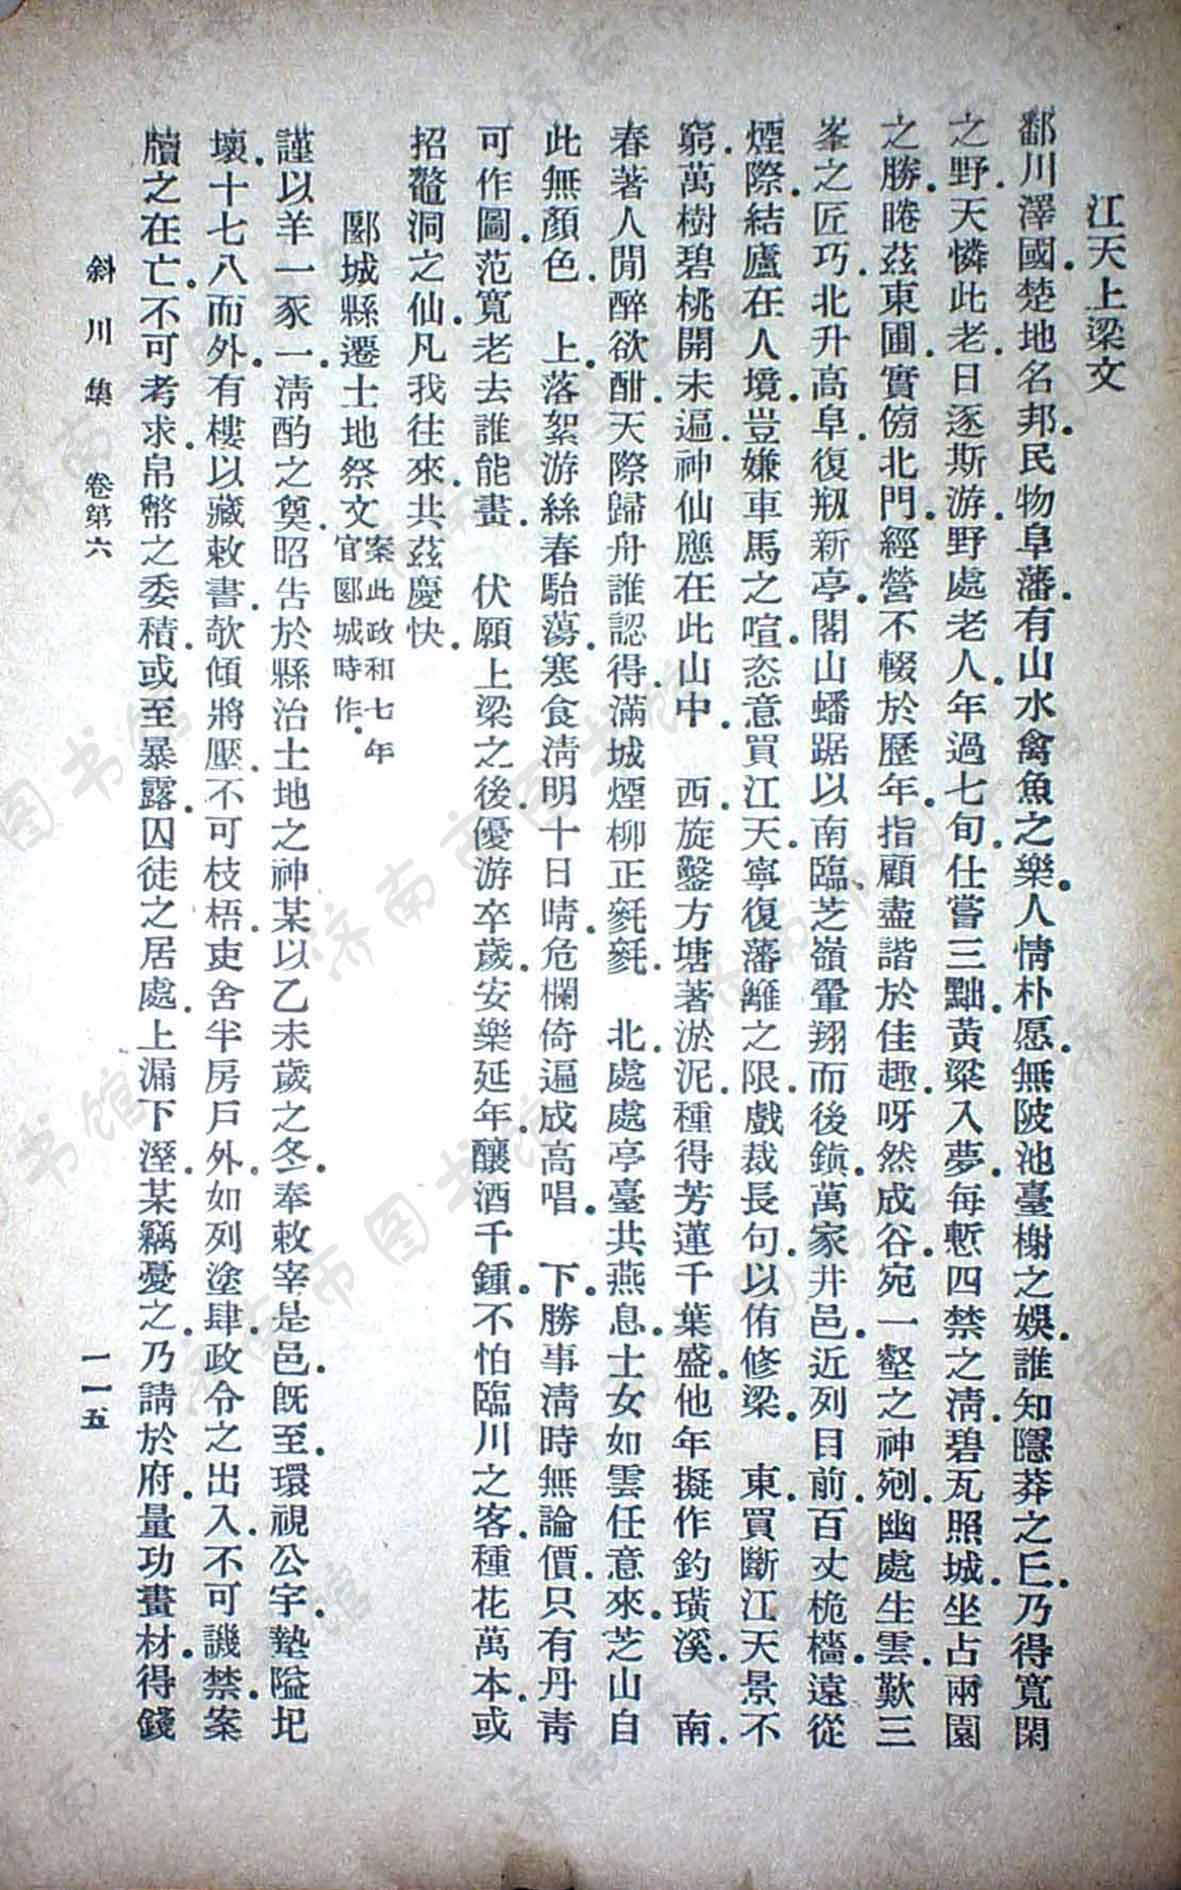 江天上梁文
鄱川澤國.楚地名邦.民物阜藩.有山水禽魚之樂.人情朴愿.無陂池臺榭之娛.誰知隱莽之巳.乃得寬閑
之野.天憐此老.日逐斯游.野處老人.年過七旬.仕嘗三黜.黃粱入夢.每慙四禁之淸.碧瓦照城.坐占兩園
之勝.睠茲東圃.實傍北門.經營不輟於歷年.指顧盡諧於佳趣.呀然成谷.宛一壑之神剜.幽處生雲.歎三
峯之匠巧.北升高阜.復剏新亭.閣山蟠踞以南臨.芝嶺翬翔而後鎭.萬家井邑.近列目前.百丈桅檣.遠從
煙際.結廬在人境.豈嫌車馬之喧.恣意買江天.寧復藩籬之限.戲裁長句.以侑修梁. 東.買斷江天景不
窮.萬樹碧桃開未遍.神仙應在此山中. 西.旋鑿方塘著淤泥.種得芳蓮千葉盛.他年擬作釣璜溪. 南.
春著人閒醉欲酣.天際歸舟誰認得.滿城煙柳正毿毿. 北.處處亭臺共燕息.士女如雲任意來.芝山自
此無顏色. 上.落絮游絲春駘蕩.寒食淸明十日晴.危欄倚遍成高唱. 下.勝事淸時無論價.只有丹靑
可作圖.范寬老去誰能畫. 伏願上梁之後.優游卒歲.安樂延年.釀酒千鍾.不怕臨川之客.種花萬本.或
招鼇洞之仙.凡我往來.共茲慶快.
郾城縣遷土地祭文案此政和七年
官郾城時作.
謹以羊一豕一.淸酌之奠.昭告於縣治土地之神.某以乙未歲之冬.奉敕宰是邑.旣至.環視公宇.墊隘圯
壞.十七八而外.有樓以藏敕書.欹傾將壓.不可枝梧.吏舍半房戶外.如列塗肆.政令之出入.不可譏禁.案
牘之在亡.不可考求.帛幣之委積.或至暴露.囚徒之居處.上漏下溼.某竊憂之.乃請於府.量功畫材.得錢
斜川集 卷第六 一一五